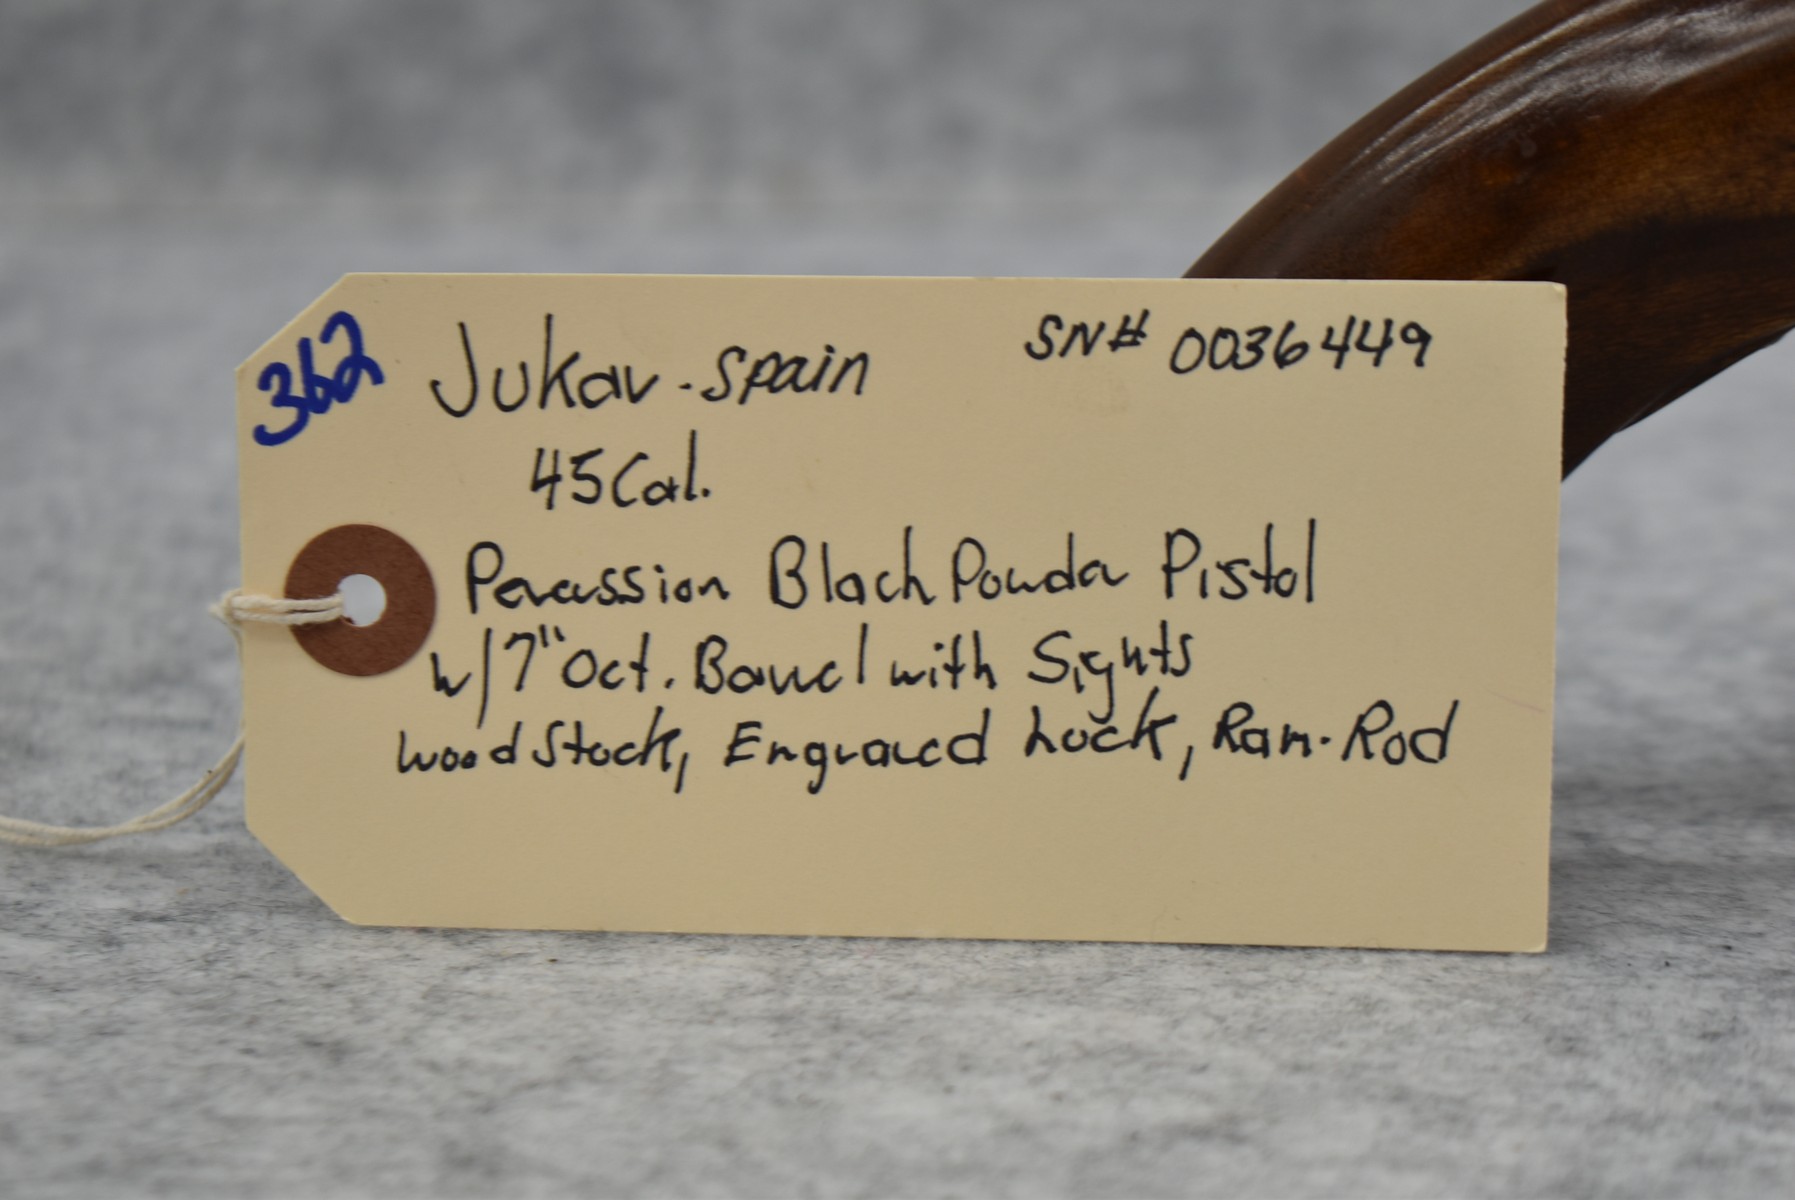 362
Jukar - Spain SN# 0036449
45 Cal.
Percussion Black Powder Pistol
w/ 7" Oct. Barrel with Sights
Wood Stock, Engraved Lock, Ram-Rod